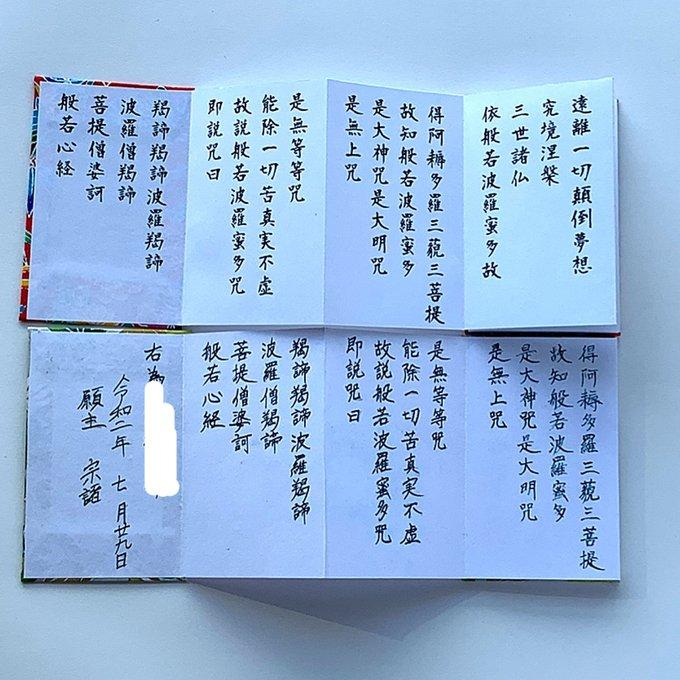 遠離一切顛倒夢想
究境涅槃
三世諸仏
依般若波羅蜜多故
得阿耨多羅三藐三菩提
故知般若波羅蜜多
是大神咒是大明咒
是無上咒
是無等等咒
能除一切苦真実不虚
故説般若波羅蜜多咒
即説咒曰
羯諦羯諦波羅羯諦
波羅僧羯諦
菩提僧婆訶
般若心経
得阿耨多羅三藐三菩提
故知般若波羅蜜多
是大神咒是大明咒
是無上咒
是無等等咒
能除一切苦真実不虚
故説般若波羅蜜多咒
即説咒曰
羯諦羯諦波羅羯諦
波羅僧羯諦
菩提僧婆訶
般若心経
右為
令和二年 七月廿九日
願主